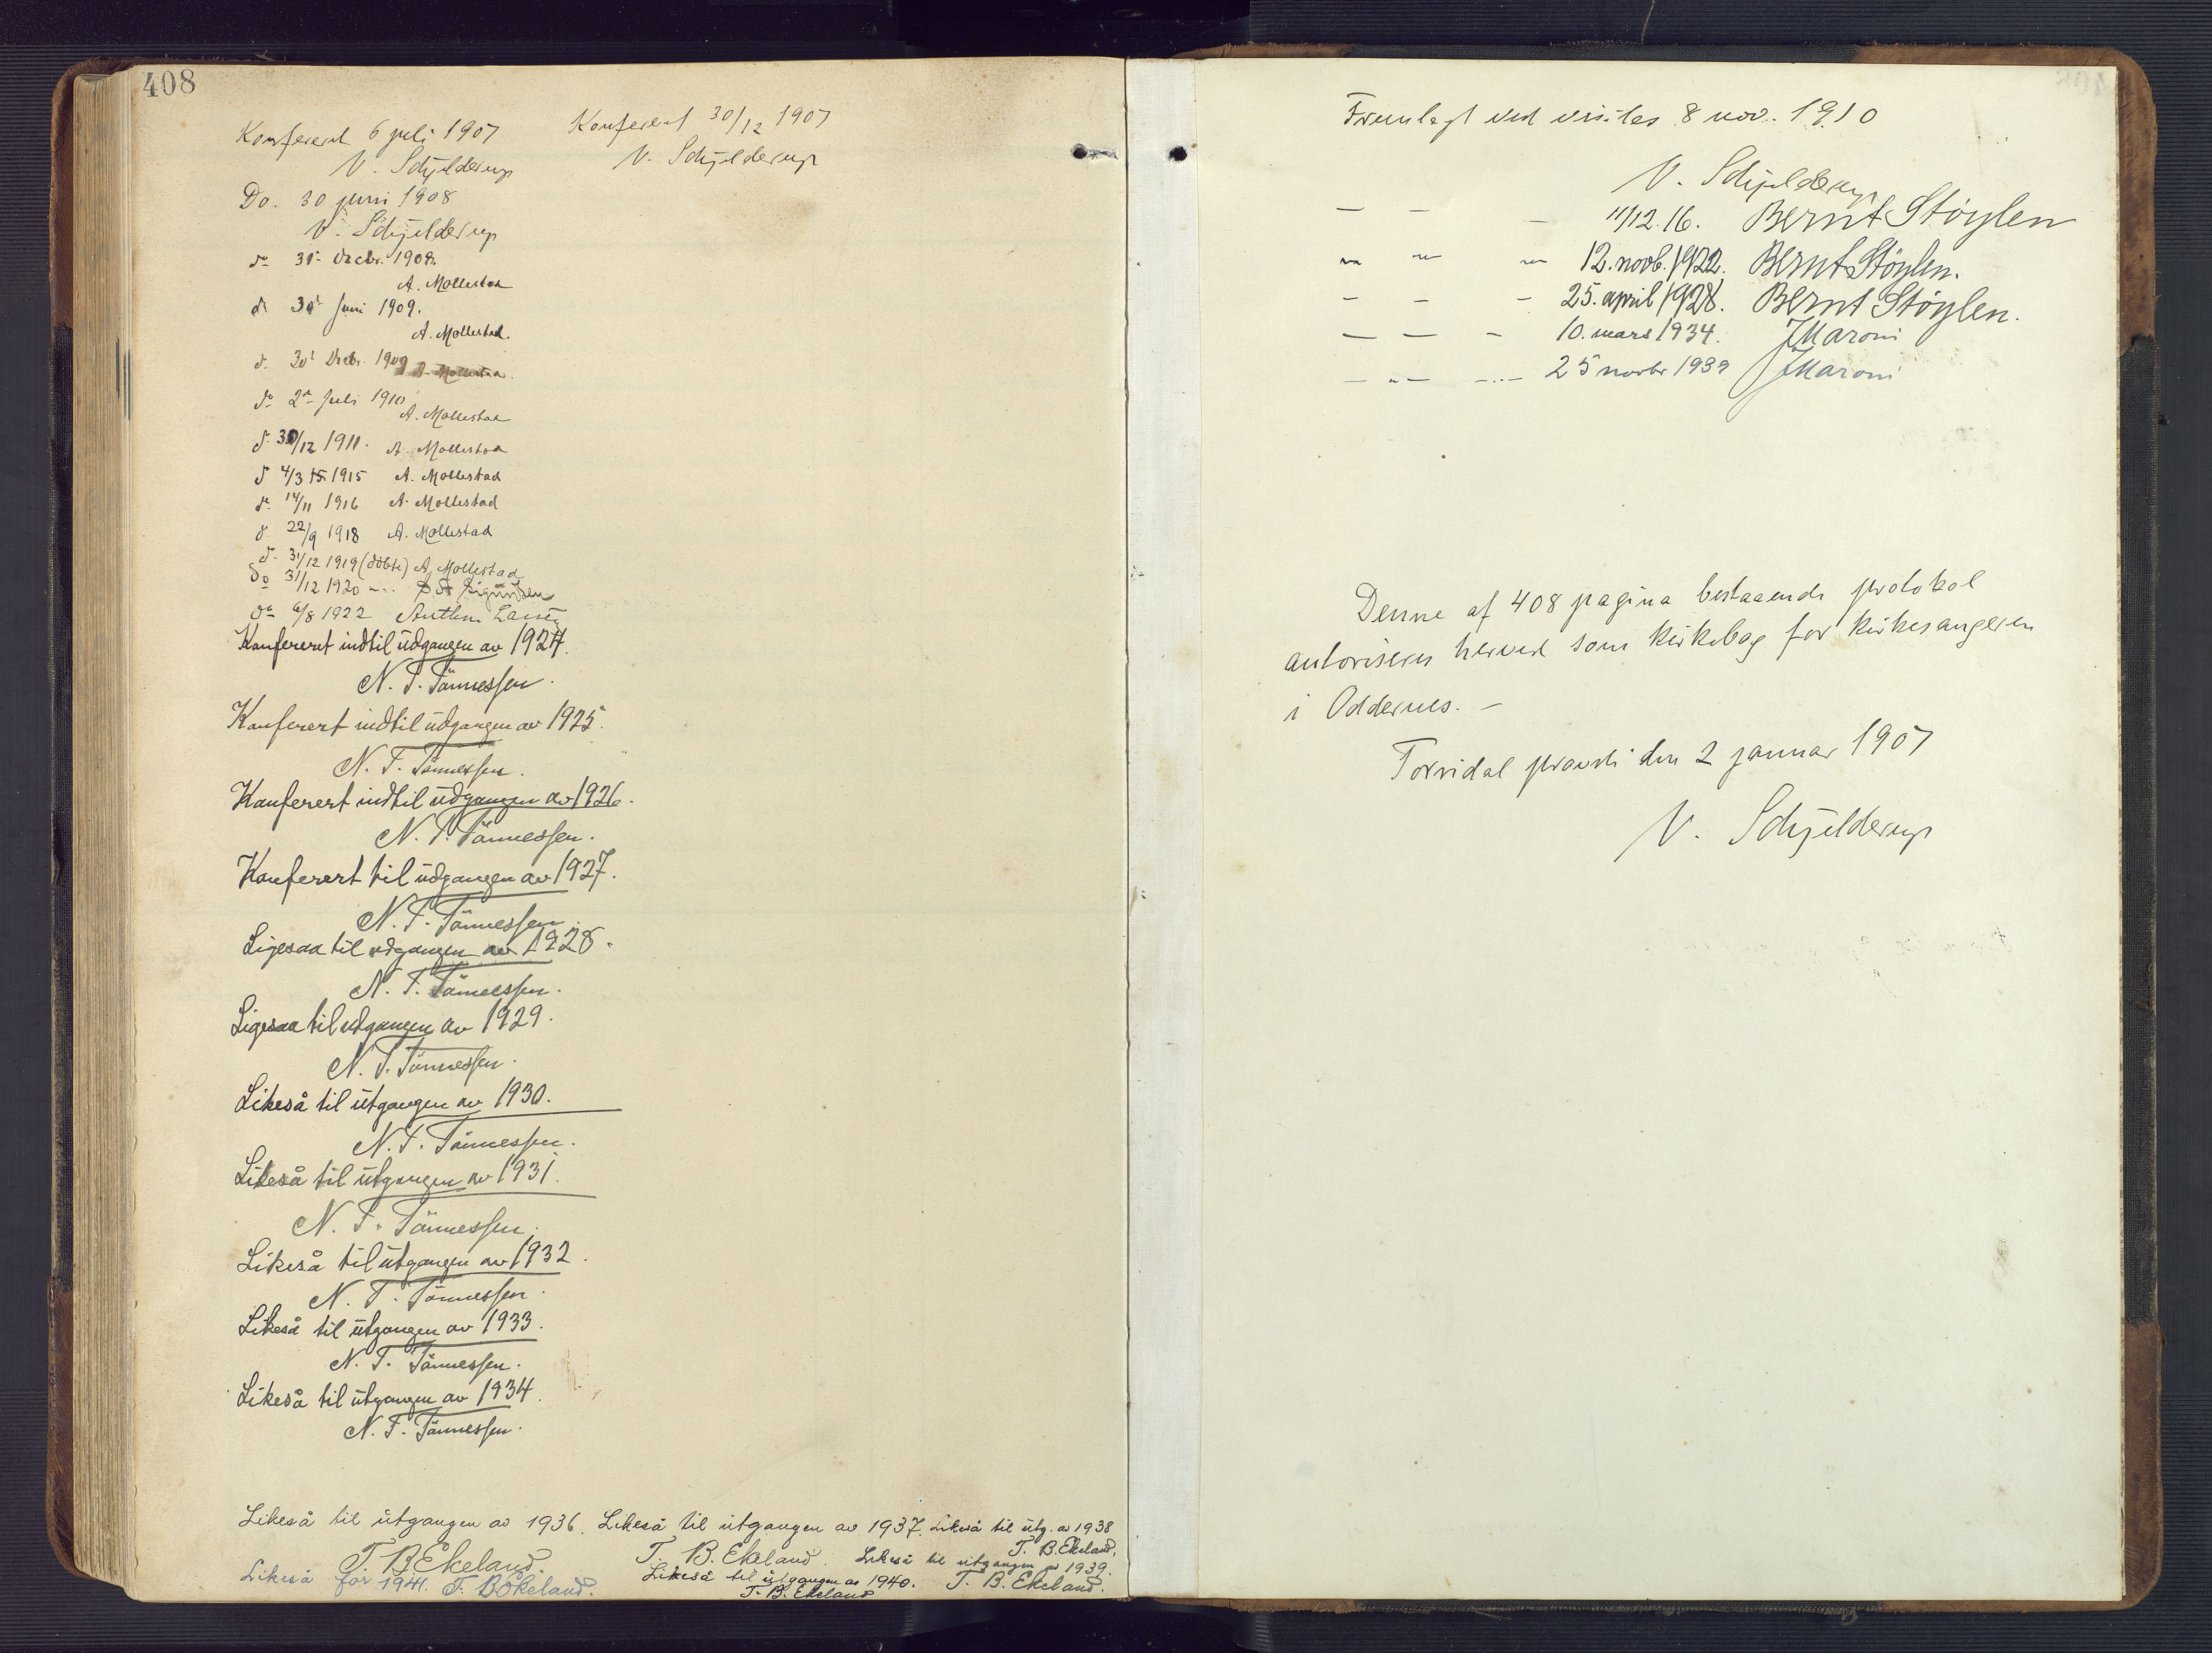 408
Konferert 6 juli 1907
V. Schjelderup
Konferert 30/12 1907
V. Schjelderup
Do. 30 juni 1908
V. Schjelderup
do 31te Decbr. 1908.
A. Mollestad
do 30te Juni 1909.
A. Mollestad.
d. 30te Decbr. 1909 A. Mollestad.
do 2den Juli 1910
A. Mollestad
do 30/12 1911. A. Mollestad
do 4/3 15 1915 A. Mollestad
do 14/11 1916 A. Mollestad
do 22/9 1918 A. Mollestad
do 31/12 1919 (døbte) A. Mollestad
Do 31/12 1920 -..
do 6/8 1922
Konfereret indtil udgangen av 1924.
N. T. Tönnessen.
Konferert indtil udgangen av 1925.
N. T. Tönnessen.
Konferert indtil udgangen av 1926.
N. T. Tönnessen.
Konferert til udgangen av 1927.
N. T. Tönnessen.
Ligesaa til udgangen av 1928.
N. T. Tönnessen.
Ligesaa til udgangen av 1929.
N. T. Tönnessen.
Likeså til utgangen av 1930.
N. T. Tönnessen.
Likeså til utgangen av 1931.
N. T. Tönnessen.
Likeså til utgangen av 1932.
N. T. Tönnessen.
Likeså til utgangen av 1933.
N. T. Tönnessen.
Likeså til utgangen av 1934.
N. T. Tönnessen.
Likeså til utgangen av 1936.
T. B. Ekeland.
Likeså til utgangen av 1937.
T. B. Ekeland.
Likeså til utg. av 1938
T. B. Ekeland.
Likeså til utgangen av 1939.
T. B. Ekeland.
Likeså til utgangen av 1940.
T. B. Ekeland
Likeså for 1941. T. B. Ekeland.
Fremlagt ved visitas 8 nov. 1910
V. Schjelderup
— — — 11/12.16. Bernt Støylen
" " " 12. novb. 1922. Bernt Støylen.
— — — 25. april 1928. Bernt Støylen.
— — — 10. mars 1934. J Maroni
— " — — " — 25 novbr 1939 J Maroni
Denne af 408 pagina bestaaende protokol
autoriseres herved som kirkebog for kirkesangeren
i Oddernes. —
Torridal provsti den 2 januar 1907
V. Schjelderup